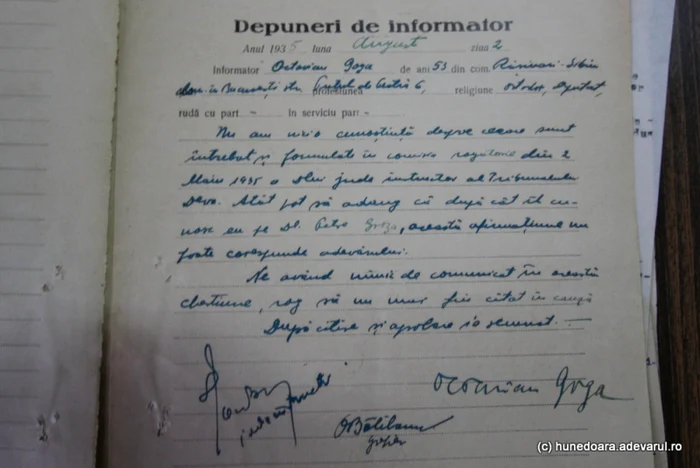 Depuneri de informator
Anul 1935 luna August ziua 2
Informator Octavian Goga de ani 53 din com. Rășinari-Sibiu
dom. în București str. profesiunea religiune ortodox, deputat,
rudă cu part - în serviciu part -
Nu am nicio cunoștință despre ceeace sunt
întrebat și formulate în comisia rogatorie din 2
Maiu 1935 a Dlui jude instructor al Tribunalului
Deva. Atât pot să adaug că după cât îl cu-
nosc eu pe Dl. Petru Groza, această afirmațiune nu
poate corespunde adevărului.
Ne având nimic de comunicat în această
chestiune, rog să nu mai fiu citat în cauză
După citire și aprobare s'a semnat.
Octavian Goga
Grefier
(c) hunedoara.adevarul.ro